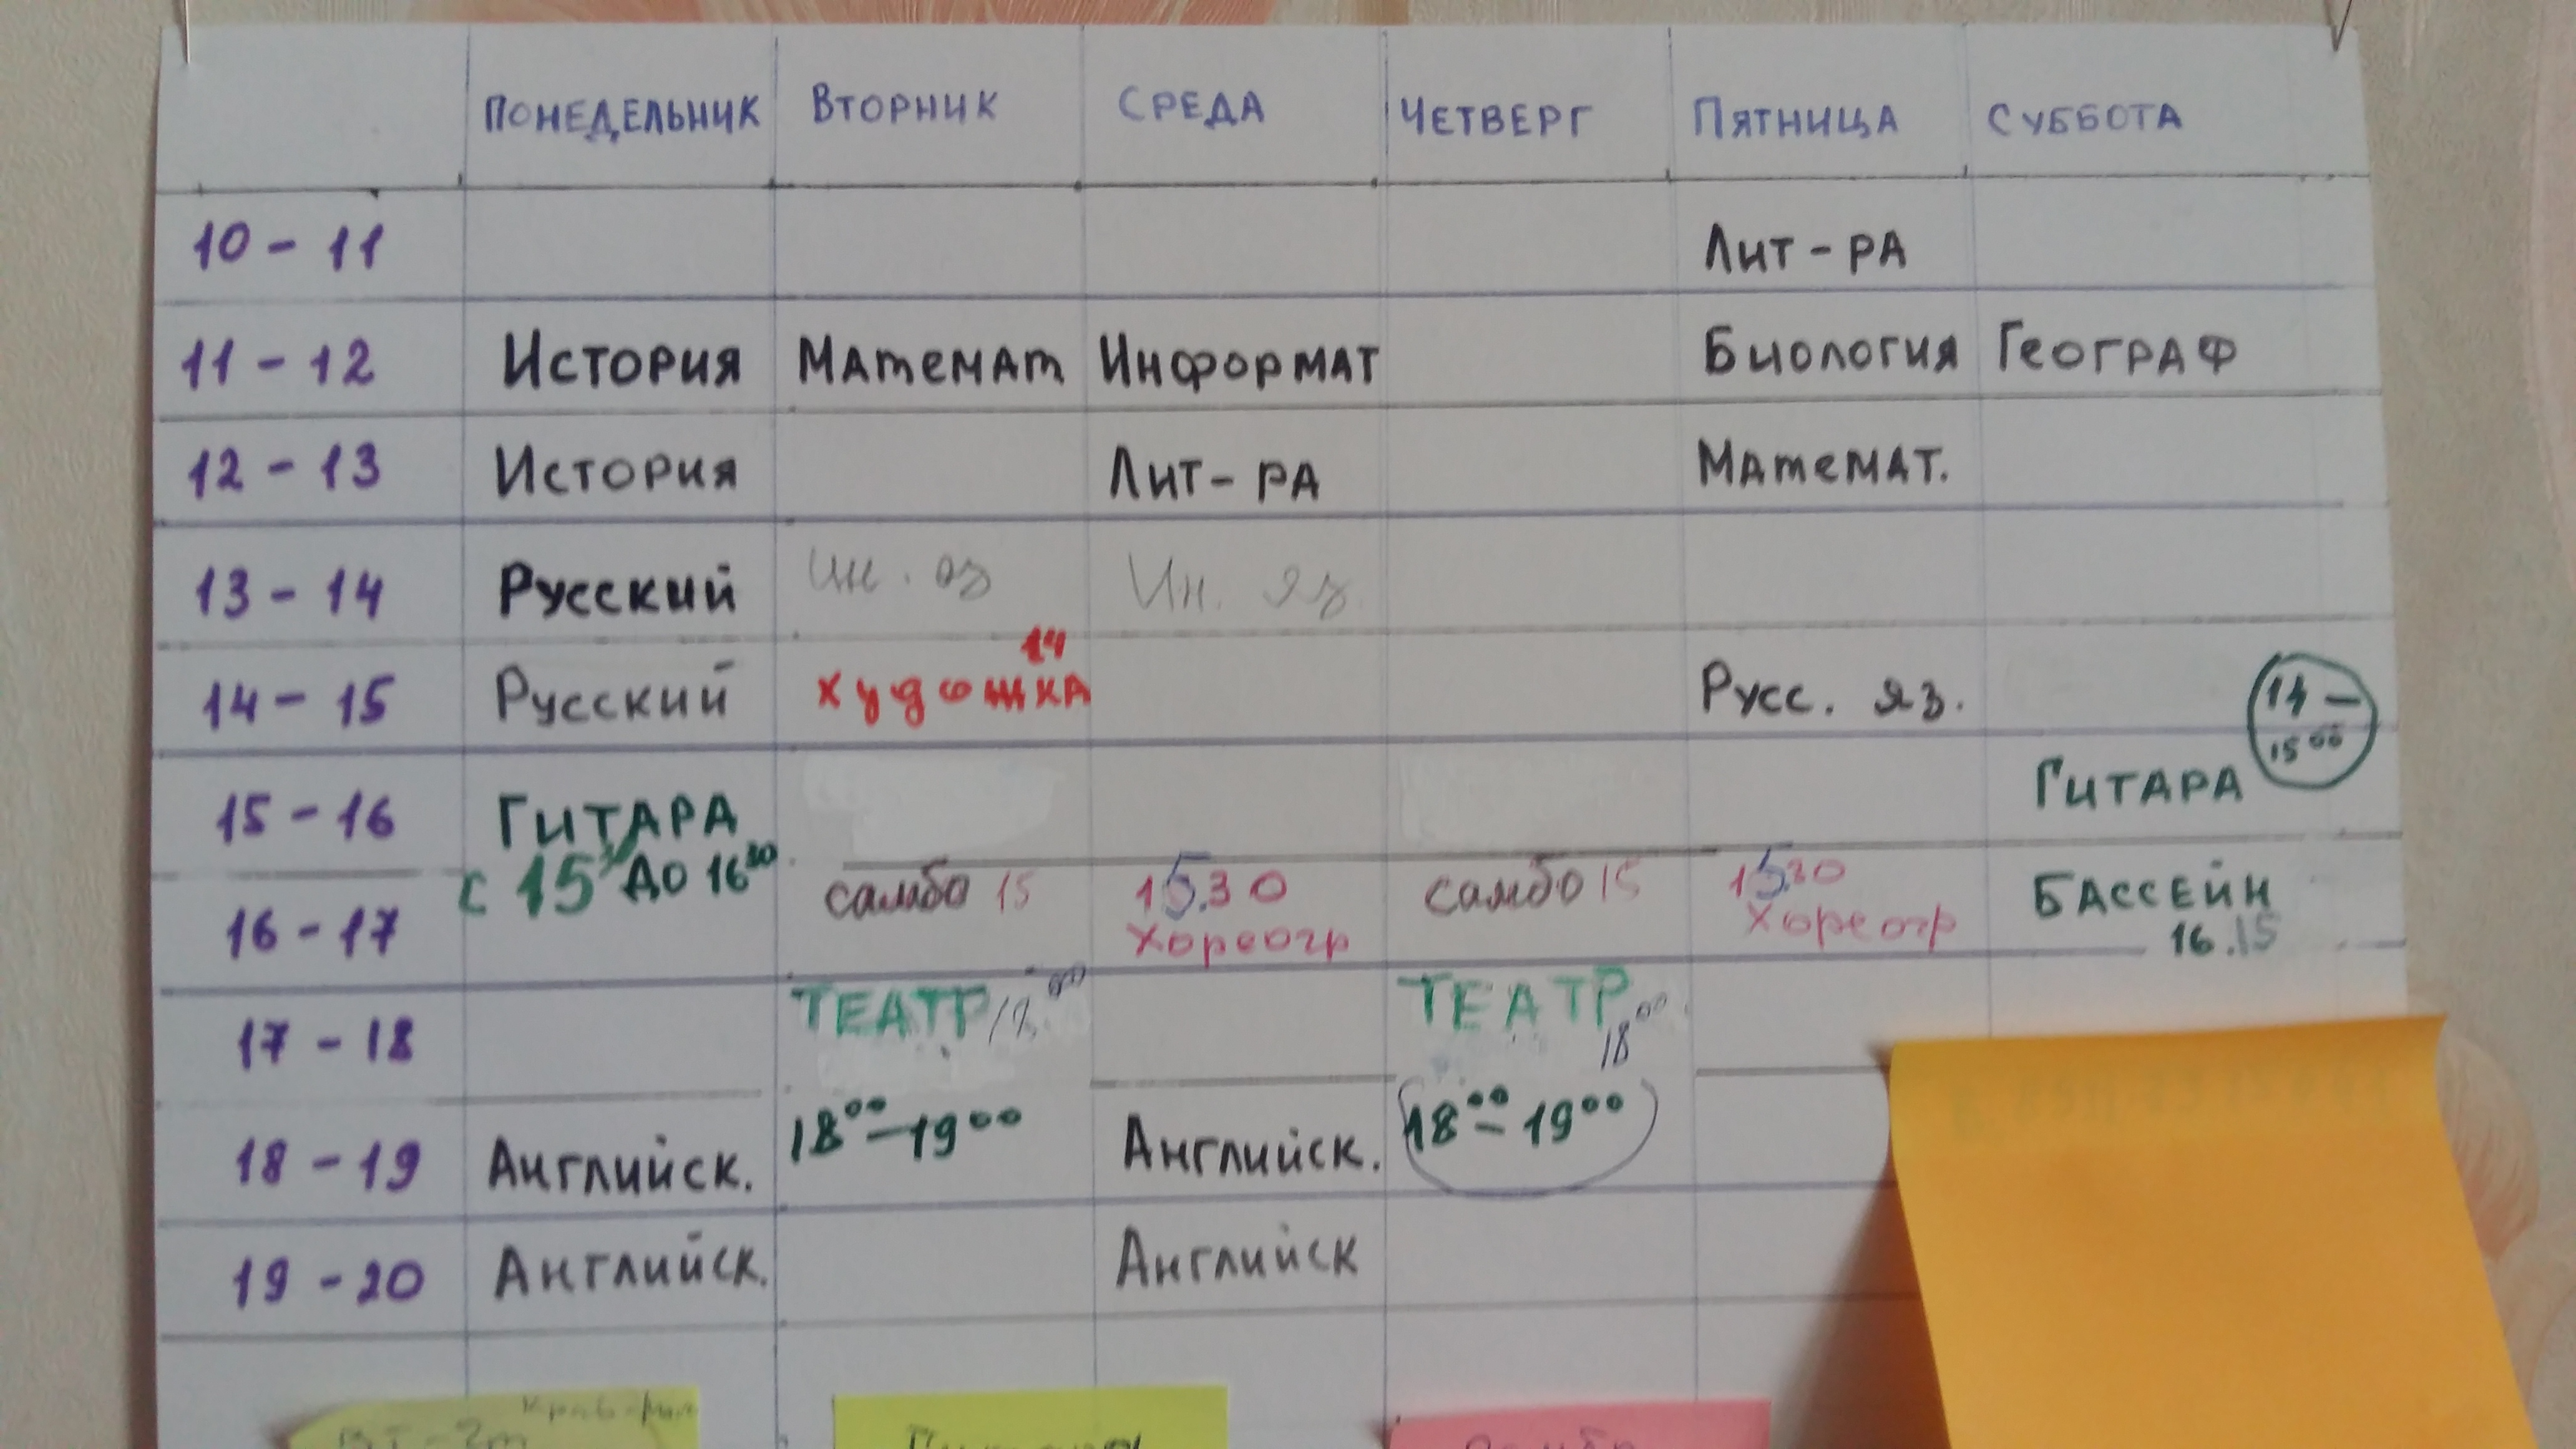 ПОНЕДЕЛЬНИК ВТОРНИК СРЕДА ЧЕТВЕРГ ПЯТНИЦА СУББОТА
10 - 11 Лит - РА
11 - 12 История Математ Информат Биология Географ
12 - 13 История Лит - РА Математ.
13 - 14 Русский Ин. яз Ин. яз.
14
14 - 15 Русский художка Русс. яз. 14 -
15 00
15 - 16 ГИТАРА ГИТАРА
с 15 30 до 16 30
16 - 17 самбо 15 15.30 самбо 15 15.30 БАССЕЙН
Хореогр Хореогр 16.15
17 - 18 ТЕАТР 18 00 ТЕАТР 18 00
18 - 19 Английск. 18 00 - 19 00 Английск. 18 00 - 19 00
19 - 20 Английск. Английск